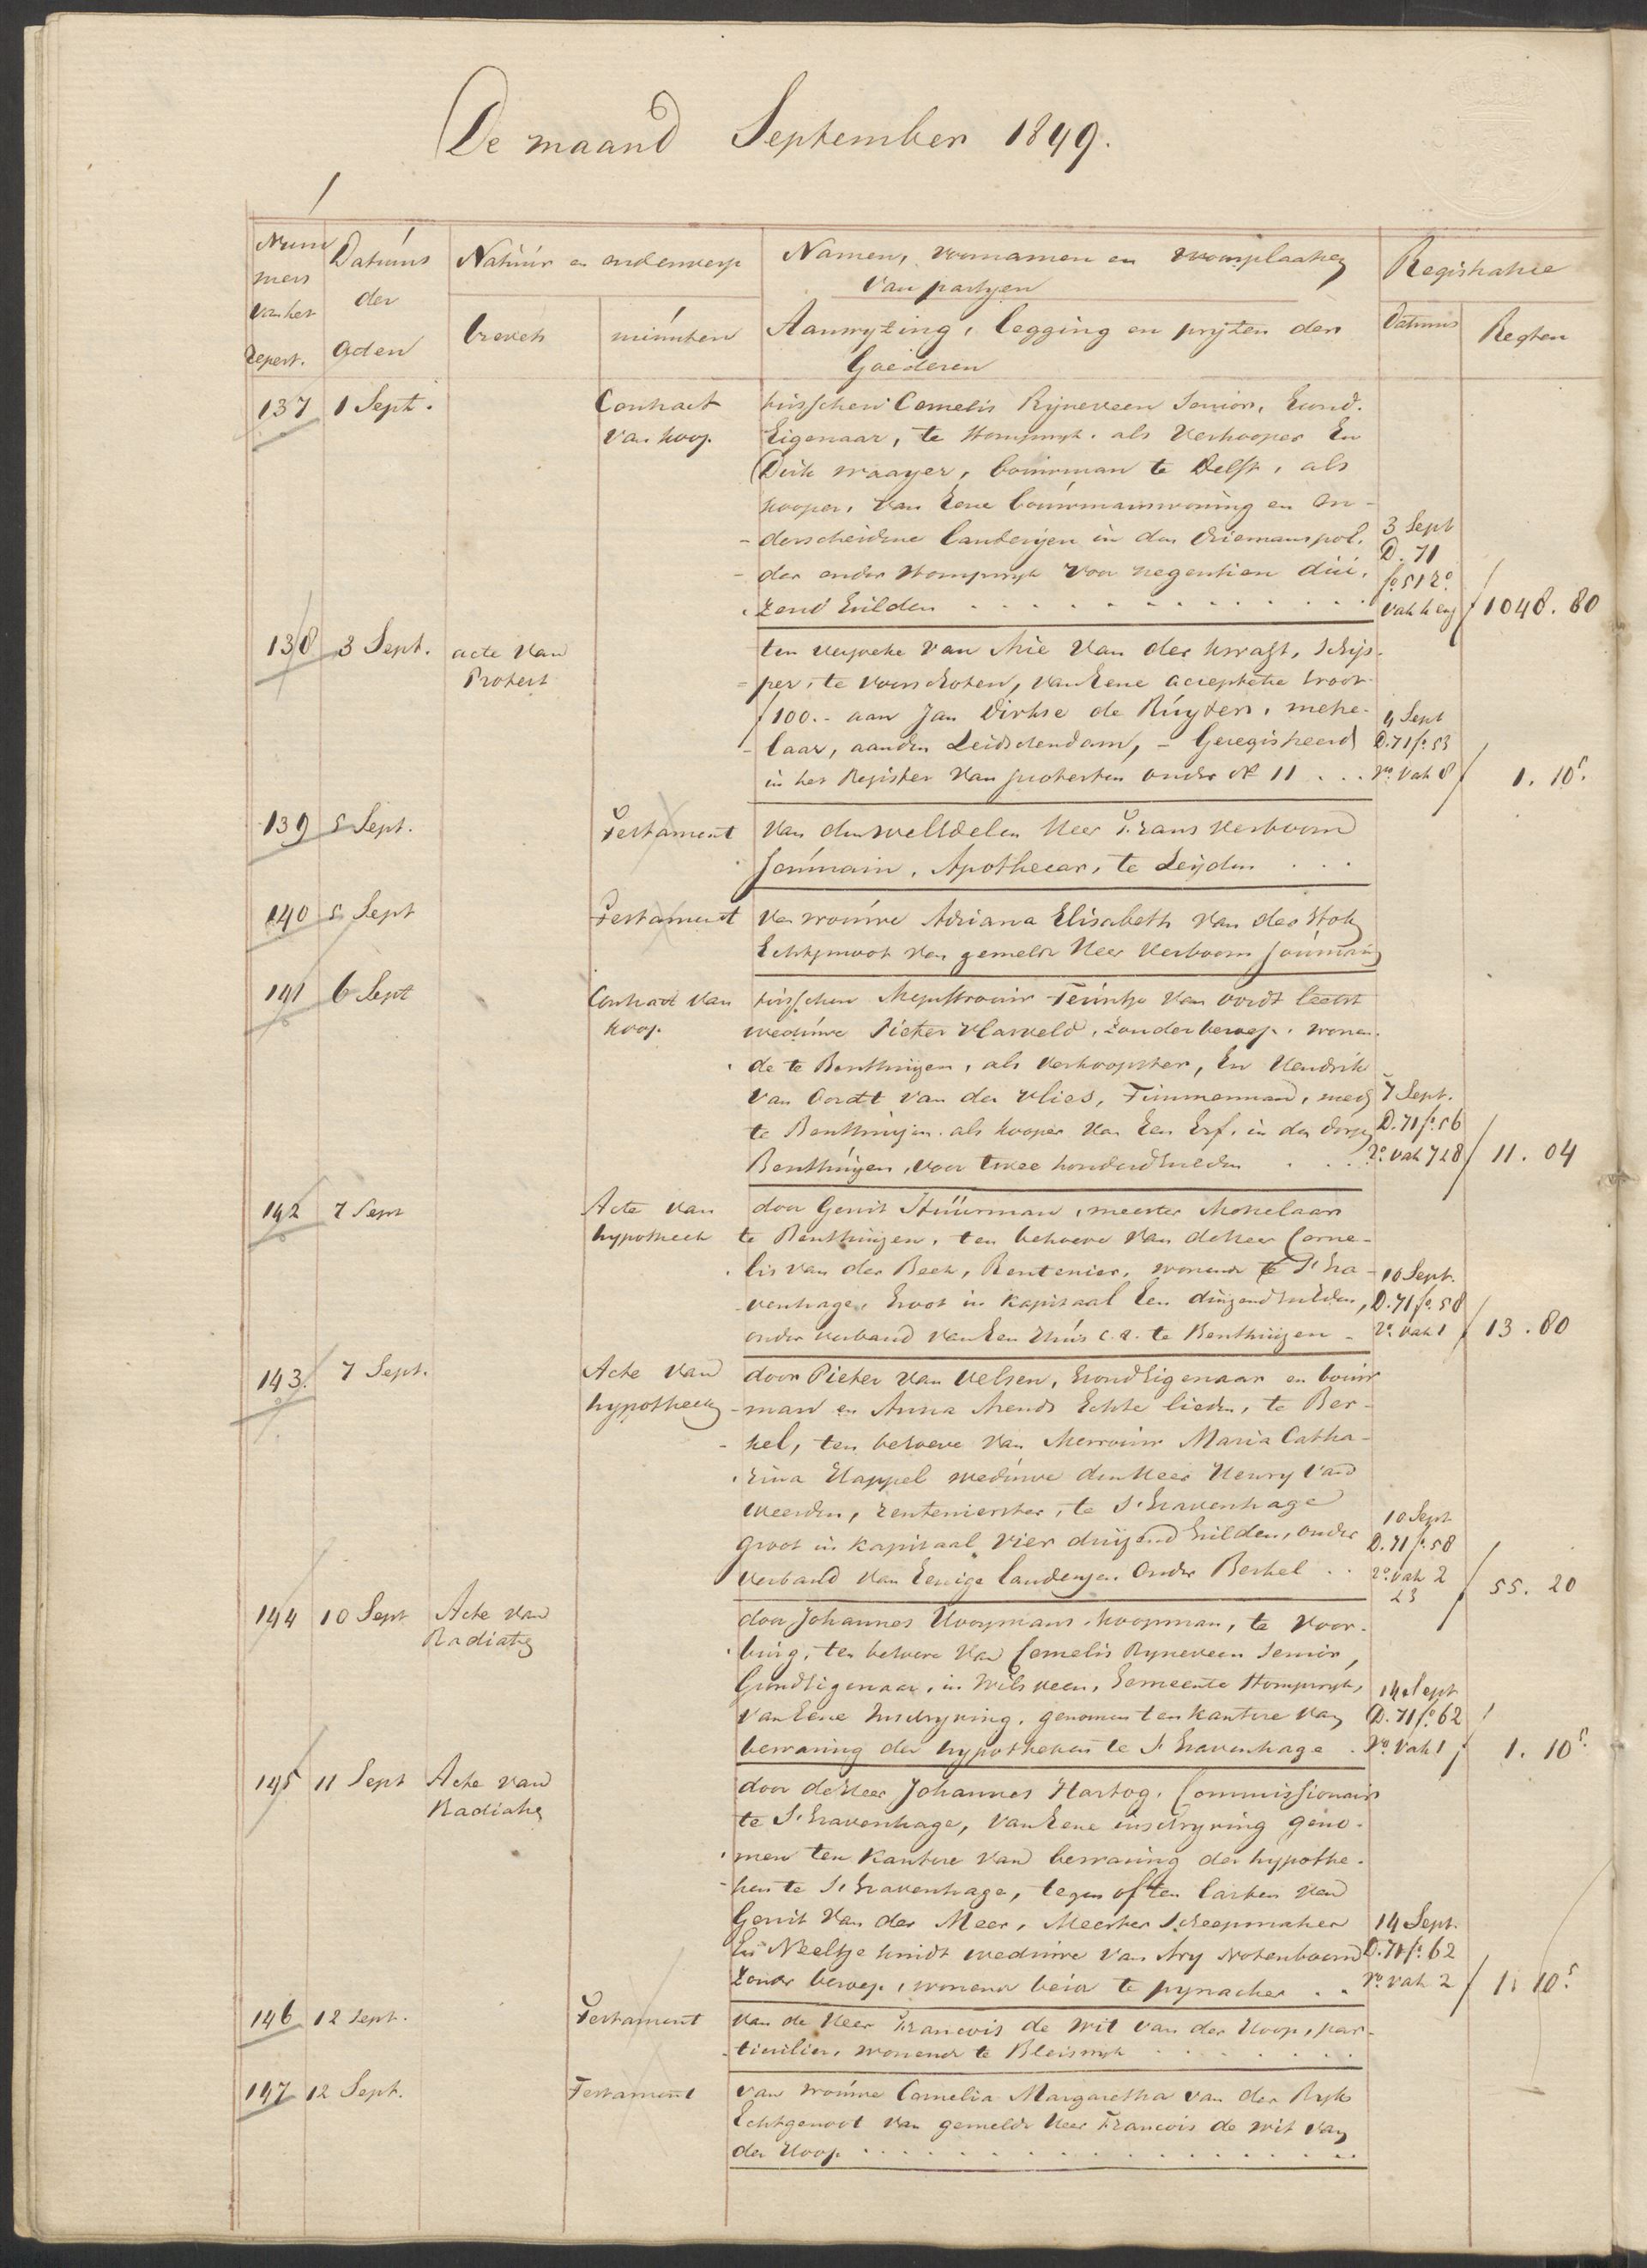 De maand September 1849.
Num
mers
van het
repert.
Datums
der
acten
Natuur en onderwerp
brevets
minuten
Namen, voornamen en woonplaatsen
van partyen
Aanwyzing, legging en pryzen der
Goederen
Registratie
Datums
Regten
137 1 Sept.
Contract
van koop.
tusschen Cornelis Ryneveen Senior, Grond.
Eigenaar, te Stompwyk. als Verkooper En
Dirk Waayer, bouwman te Delft, als
kooper, van Eene bouwmanswoning en on-
-derscheidene landeryen in den Driemanspol.
-der onder Stompwyk voor negentien dui.
zend Gulden
3 Sept
D. 71
fo. 51 ro
vak 4 en
/ 1048. 80
138 3 Sept.
acte van
Protest
ten verzoeke van Arie van der Kraft, schip-
-per, te Voorschoten, van Eene acceptatie Groot
ƒ100.- aan Jan Dirkse de Ruyter, make-
-laar, aan den Leidschendam, - Geregistreerd
in het Register van protesten onder No 11 . . .
4 Sept
D. 71 fo. 53
ro. vak 8
/ 1. 10⁵.
139 5 Sept.
Testament
van den WelEdelen Heer Frans Verboom
Joúmain, Apothecar, te Leyden . . .
140 5 Sept
Testament
van Vrouwe Adriana Elisabeth van der Stok
Echtgenoot van gemelde Heer Verboom Joúmain
141 6 Sept
Contract van
koop.
tusschen Mejuffrouw Teuntje van Oordt laatst
weduwe Pieter Vlasveld, zonder beroep, wonen-
de te Benthuizen, als Verkoopster, En Hendrik
van Oordt van der Vlies, Timmerman, mede
te Benthuizen. als kooper van Een Erf. in den dorpe
Benthuizen, voor twee honderd Gulden . . .
7 Sept.
D. 71 fo. 56
ro. vak 7 & 8
/ 11. 04
142 7 Sept
Acte van
hypotheek
door Gerrit Stuurman, meester Metselaar
te Benthuizen, ten behoeve van de Heer Corne-
lis van der Beek, Rentenier, wonende te S' Gra-
-venhage, Groot in kapitaal Een duizend Gulden,
onder verband van Een Huis c. a. te Benthuizen -
10 Sept.
D. 71 fo. 58
ro. vak 1
/ 13. 80
143. 7 Sept.
Acte van
hypotheek
door Pieter van Velsen, GrondEigenaar en bouw
-man en Anna Arends Echte lieden, te Ber-
-kel, ten behoeve van Mevrouw Maria Catha-
rina Happel weduwe den Heer Henry van
Weerden, rentenierster, te S' Gravenhage
Groot in kapitaal Vier duizend Gulden, onder
verband van Eenige landeryen onder Berkel . .
10 Sept
D. 71 fo. 58
ro. vak 2
& 3
/ 55. 20
144 10 Sept
Acte van
Radiatie
door Johannes Hooymans, koopman, te Voor-
burg, ten behoeve van Cornelis Ryneveen Senior,
GrondEigenaar, in Wilsveen, Gemeente Stompwyk,
van Eene Inschryving, genomen ten kantore van
bewaring der hypotheken te S' Gravenhage .
14 Sept
D. 71 fo. 62
ro. vak 1
/ 1. 10⁵.
145 11 Sept
Acte van
Radiatie
door de Heer Johannes Hartog. Commissionair
te S' Gravenhage, van Eene inschryving geno-
men ten kantore van bewaring der hypothe-
-ken te S' Gravenhage, tegen of ten lasten van
Gerrit van der Meer, Meester Scheepmaker
En Neeltje Smidt weduwe van Ary Notenboom
zonder beroep, wonende beide te Pynacker . .
14 Sept.
D. 71 fo. 62
ro. vak 2
/ 1. 10⁵.
146 12 Sept.
Testament
van de Heer Francois de Wit van der Hoop, par-
-ticulier, wonende te Bleiswyk
147 12 Sept.
Testament
van vrouwe Cornelia Margaretha van der Ryk
Echtgenoot van gemelde Heer Francois de Wit van
der Hoop